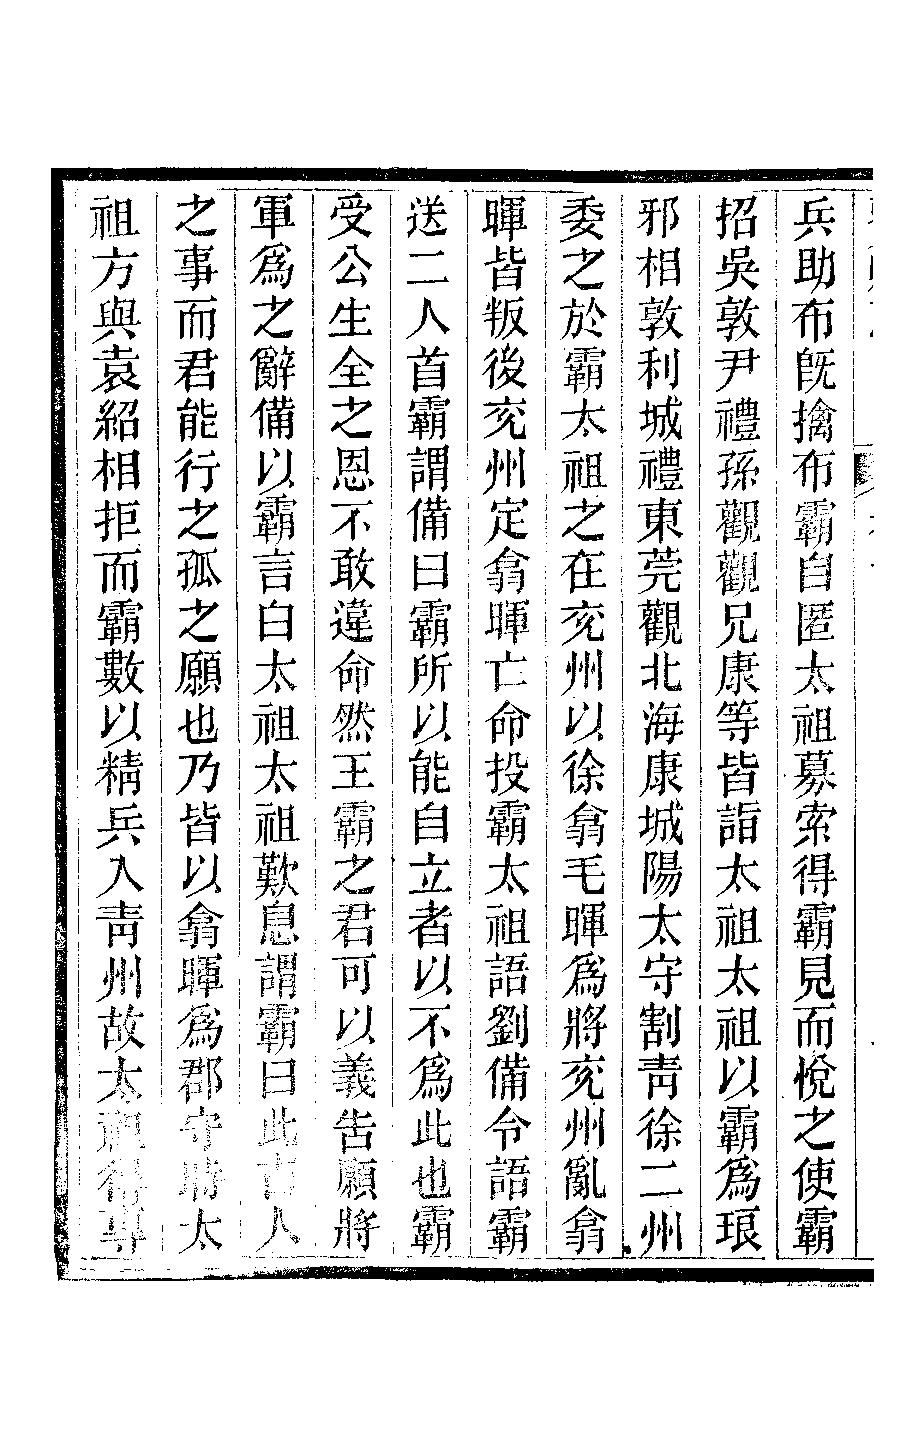 兵助布旣擒布霸自匿太祖募索得霸見而悅之使霸
招吳敦尹禮孫觀觀兄康等皆詣太祖太祖以霸爲琅
邪相敦利城禮東莞觀北海康城陽太守割靑徐二州
委之於霸太祖之在兗州以徐翕毛暉爲將兗州亂翕
暉皆叛後兗州定翕暉亡命投霸太祖語劉備令語霸
送二人首霸謂備曰霸所以能自立者以不爲此也霸
受公生全之恩不敢違命然王霸之君可以義告願將
軍爲之辭備以霸言白太祖太祖歎息謂霸曰此古人
之事而君能行之孤之願也乃皆以翕暉爲郡守時太
祖方與袁紹相拒而霸數以精兵入靑州故太祖得專